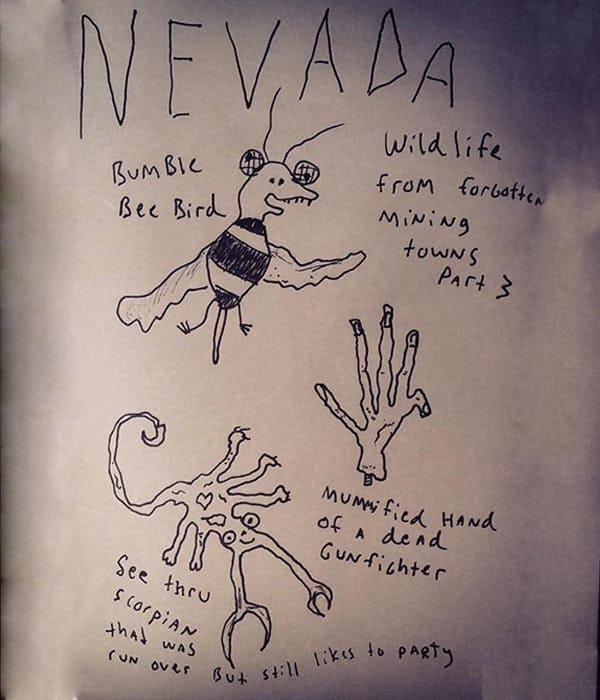 NEVADA
BUMBle
Bee Bird
Wildlife
from forgotten
MiNiNg
towNs
PArt 3
MUMMified HANd
of A deAd
GUNfighter
See thru
scorpiAN
thAt wAs
rUN over But still likes to pARty